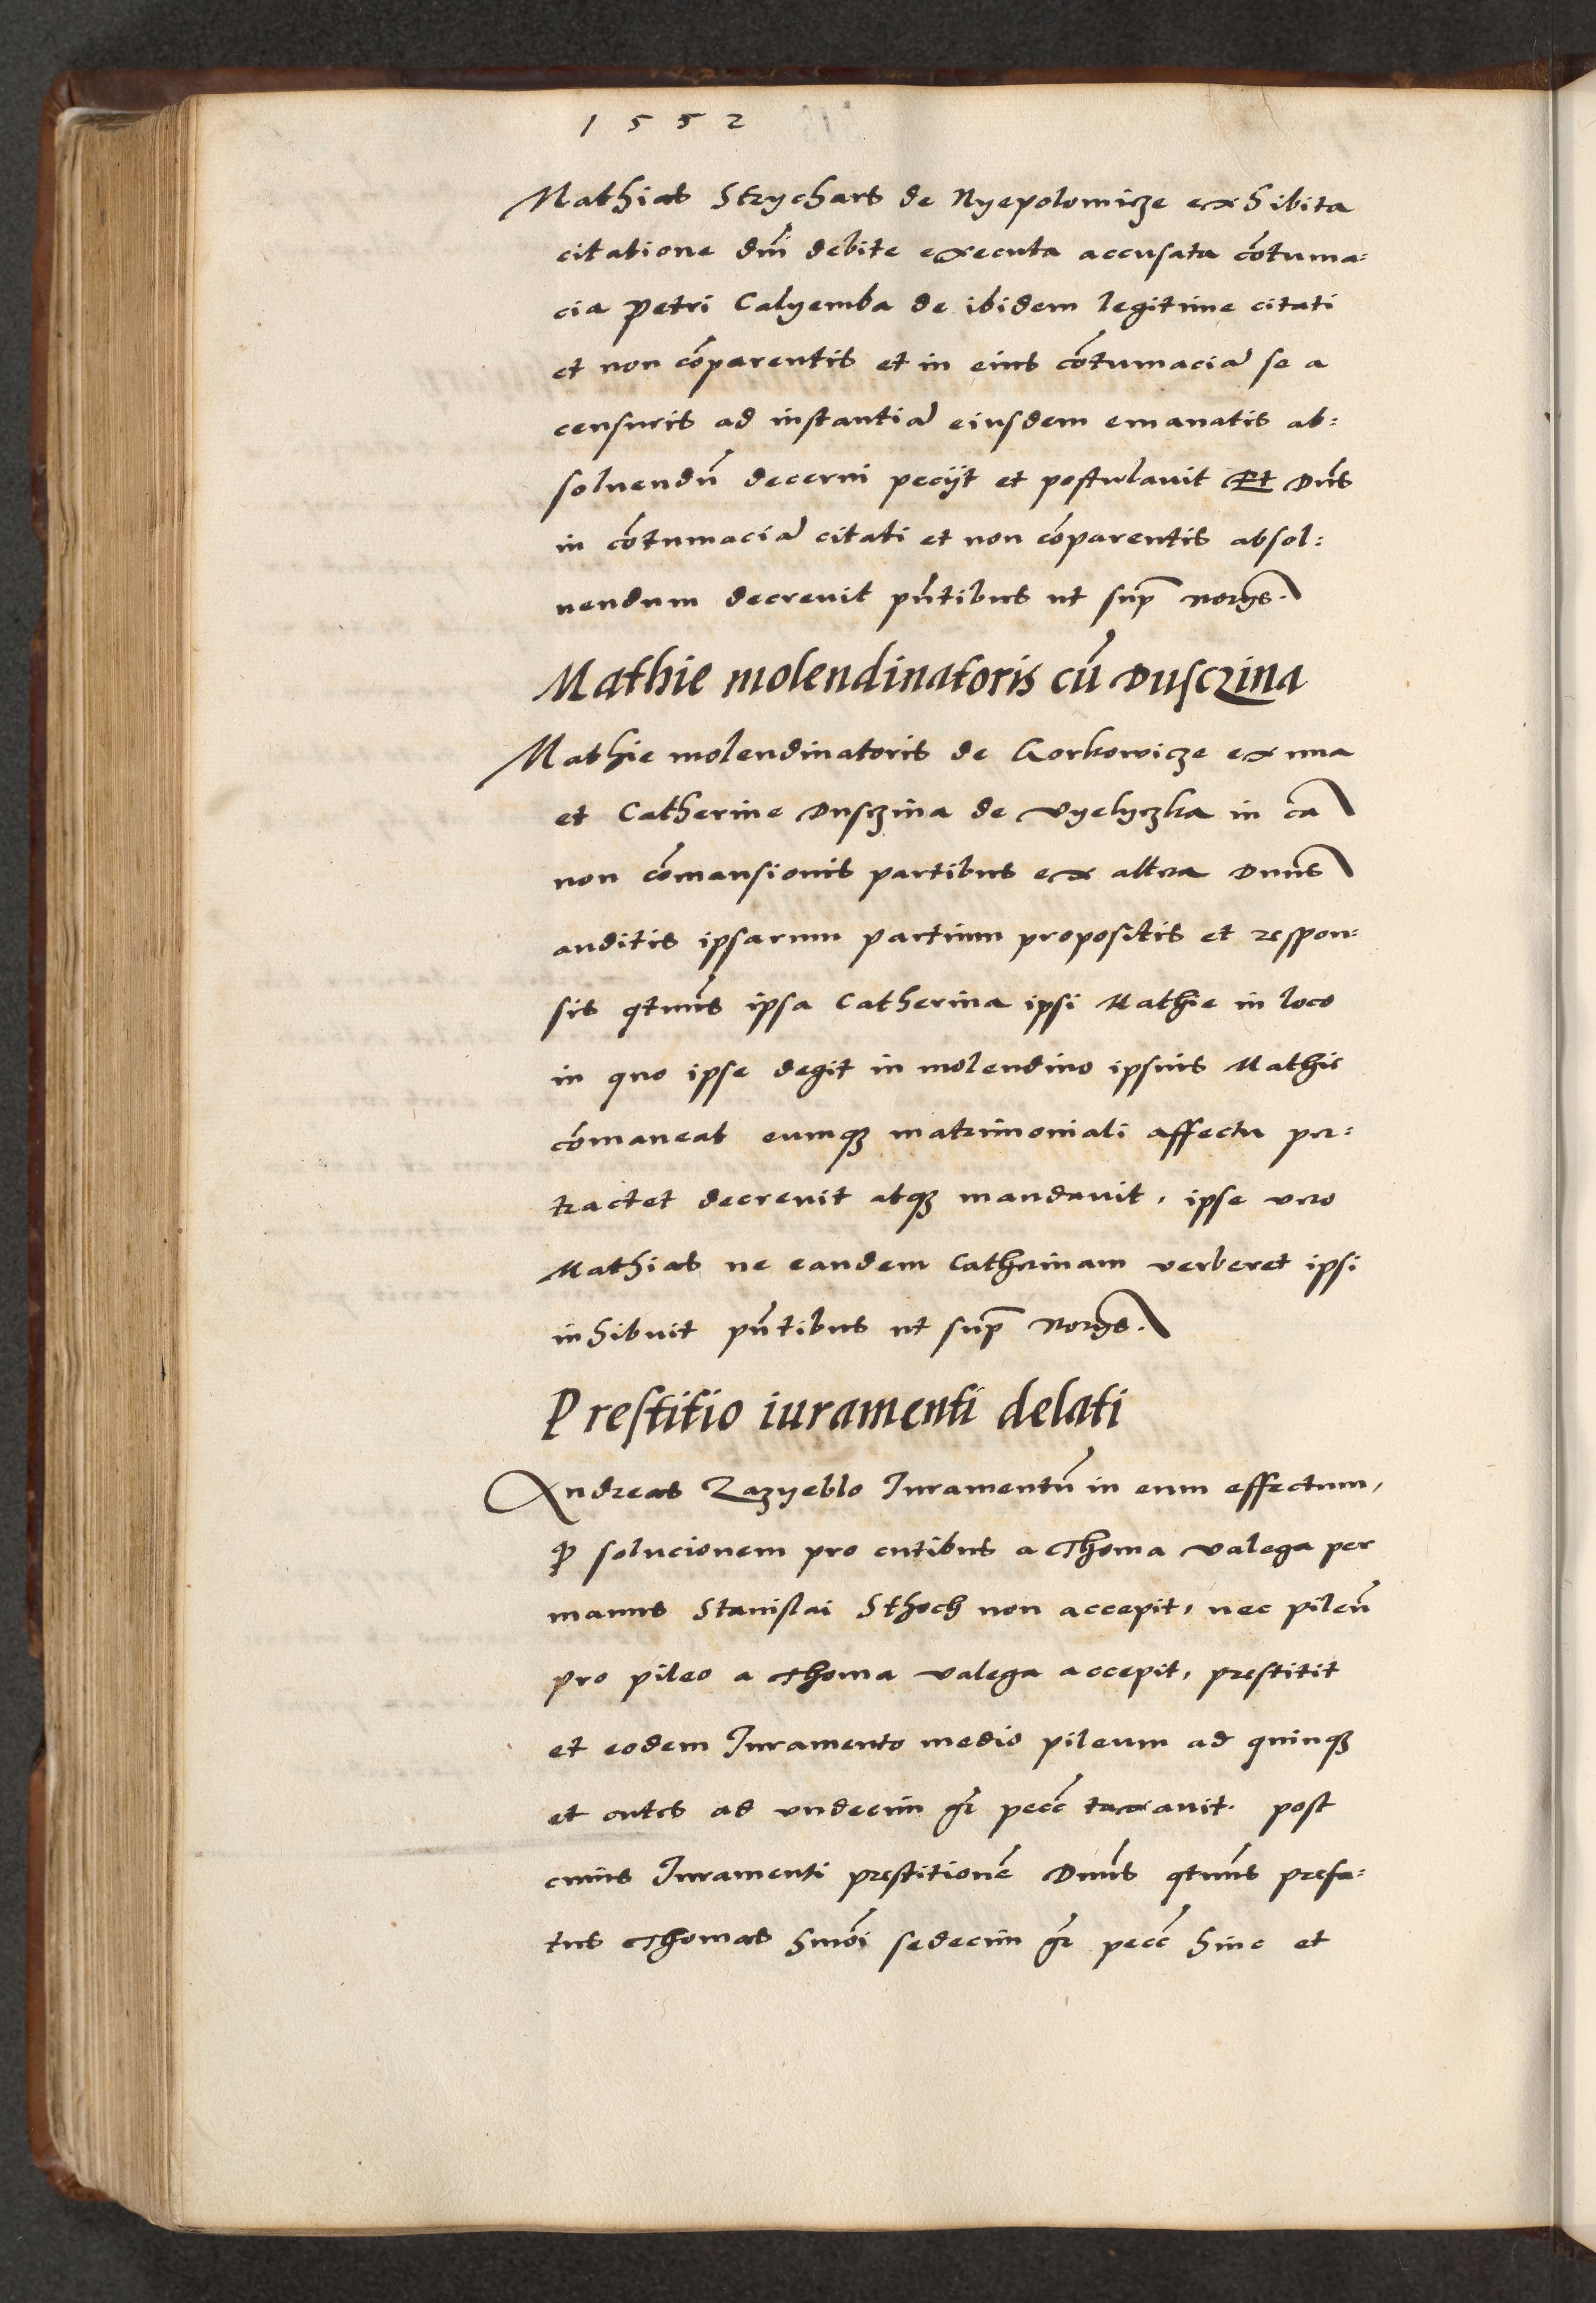 1552
Mathias Strychars de Nyepolomicze exhibita
citatione dni debite executa accusata cõtuma=
cia Petri Calyemba de ibidem legitime citati
et non cõparentis et in eius cõtumaciã se a
censuris ad instantiã eiusdem emanatis ab=
soluendũ decerni peciit et postulauit Et Dns
in cõtumaciã citati et non cõparentis absol=
uendum decreuit pñtibus ut sup norys.
Mathie molendinatoris cũ Dusczina
Mathie molendinatoris de Gorkowicze ex una
et Catherine Dusczina de Vyelyczka in ca
non cõmansionis partibus ex altera Dnus
auditis ipsarum partium propositis et respon=
sis qtnus ipsa Catherina ipsi Mathie in loco
in quo ipse degit in molendino ipsius Mathie
cõmaneat eumqʒ matrimoniali affectu per=
tractet decreuit atqʒ mandauit, ipse vero
Mathias ne eandem Catherinam verberet ipsi
inhibuit pñtibus ut sup norys.
Prestitio iuramenti delati
Andreas Zazyeblo Iuramentũ in eum effectum,
ꝙ solucionem pro cutibus a Thoma Valega per
manus Stanislai Sthoch non accepit, nec pileũ
pro pileo a Thoma Valega accepit, prestitit
et eodem Iuramento medio pileum ad quinqʒ
et cutes ad undecim gr pecc taxauit. post
cuius Iuramenti prestitionẽ Dnus qtnus prefa=
tus Thomas Smõi sedecim gr pecc hinc et